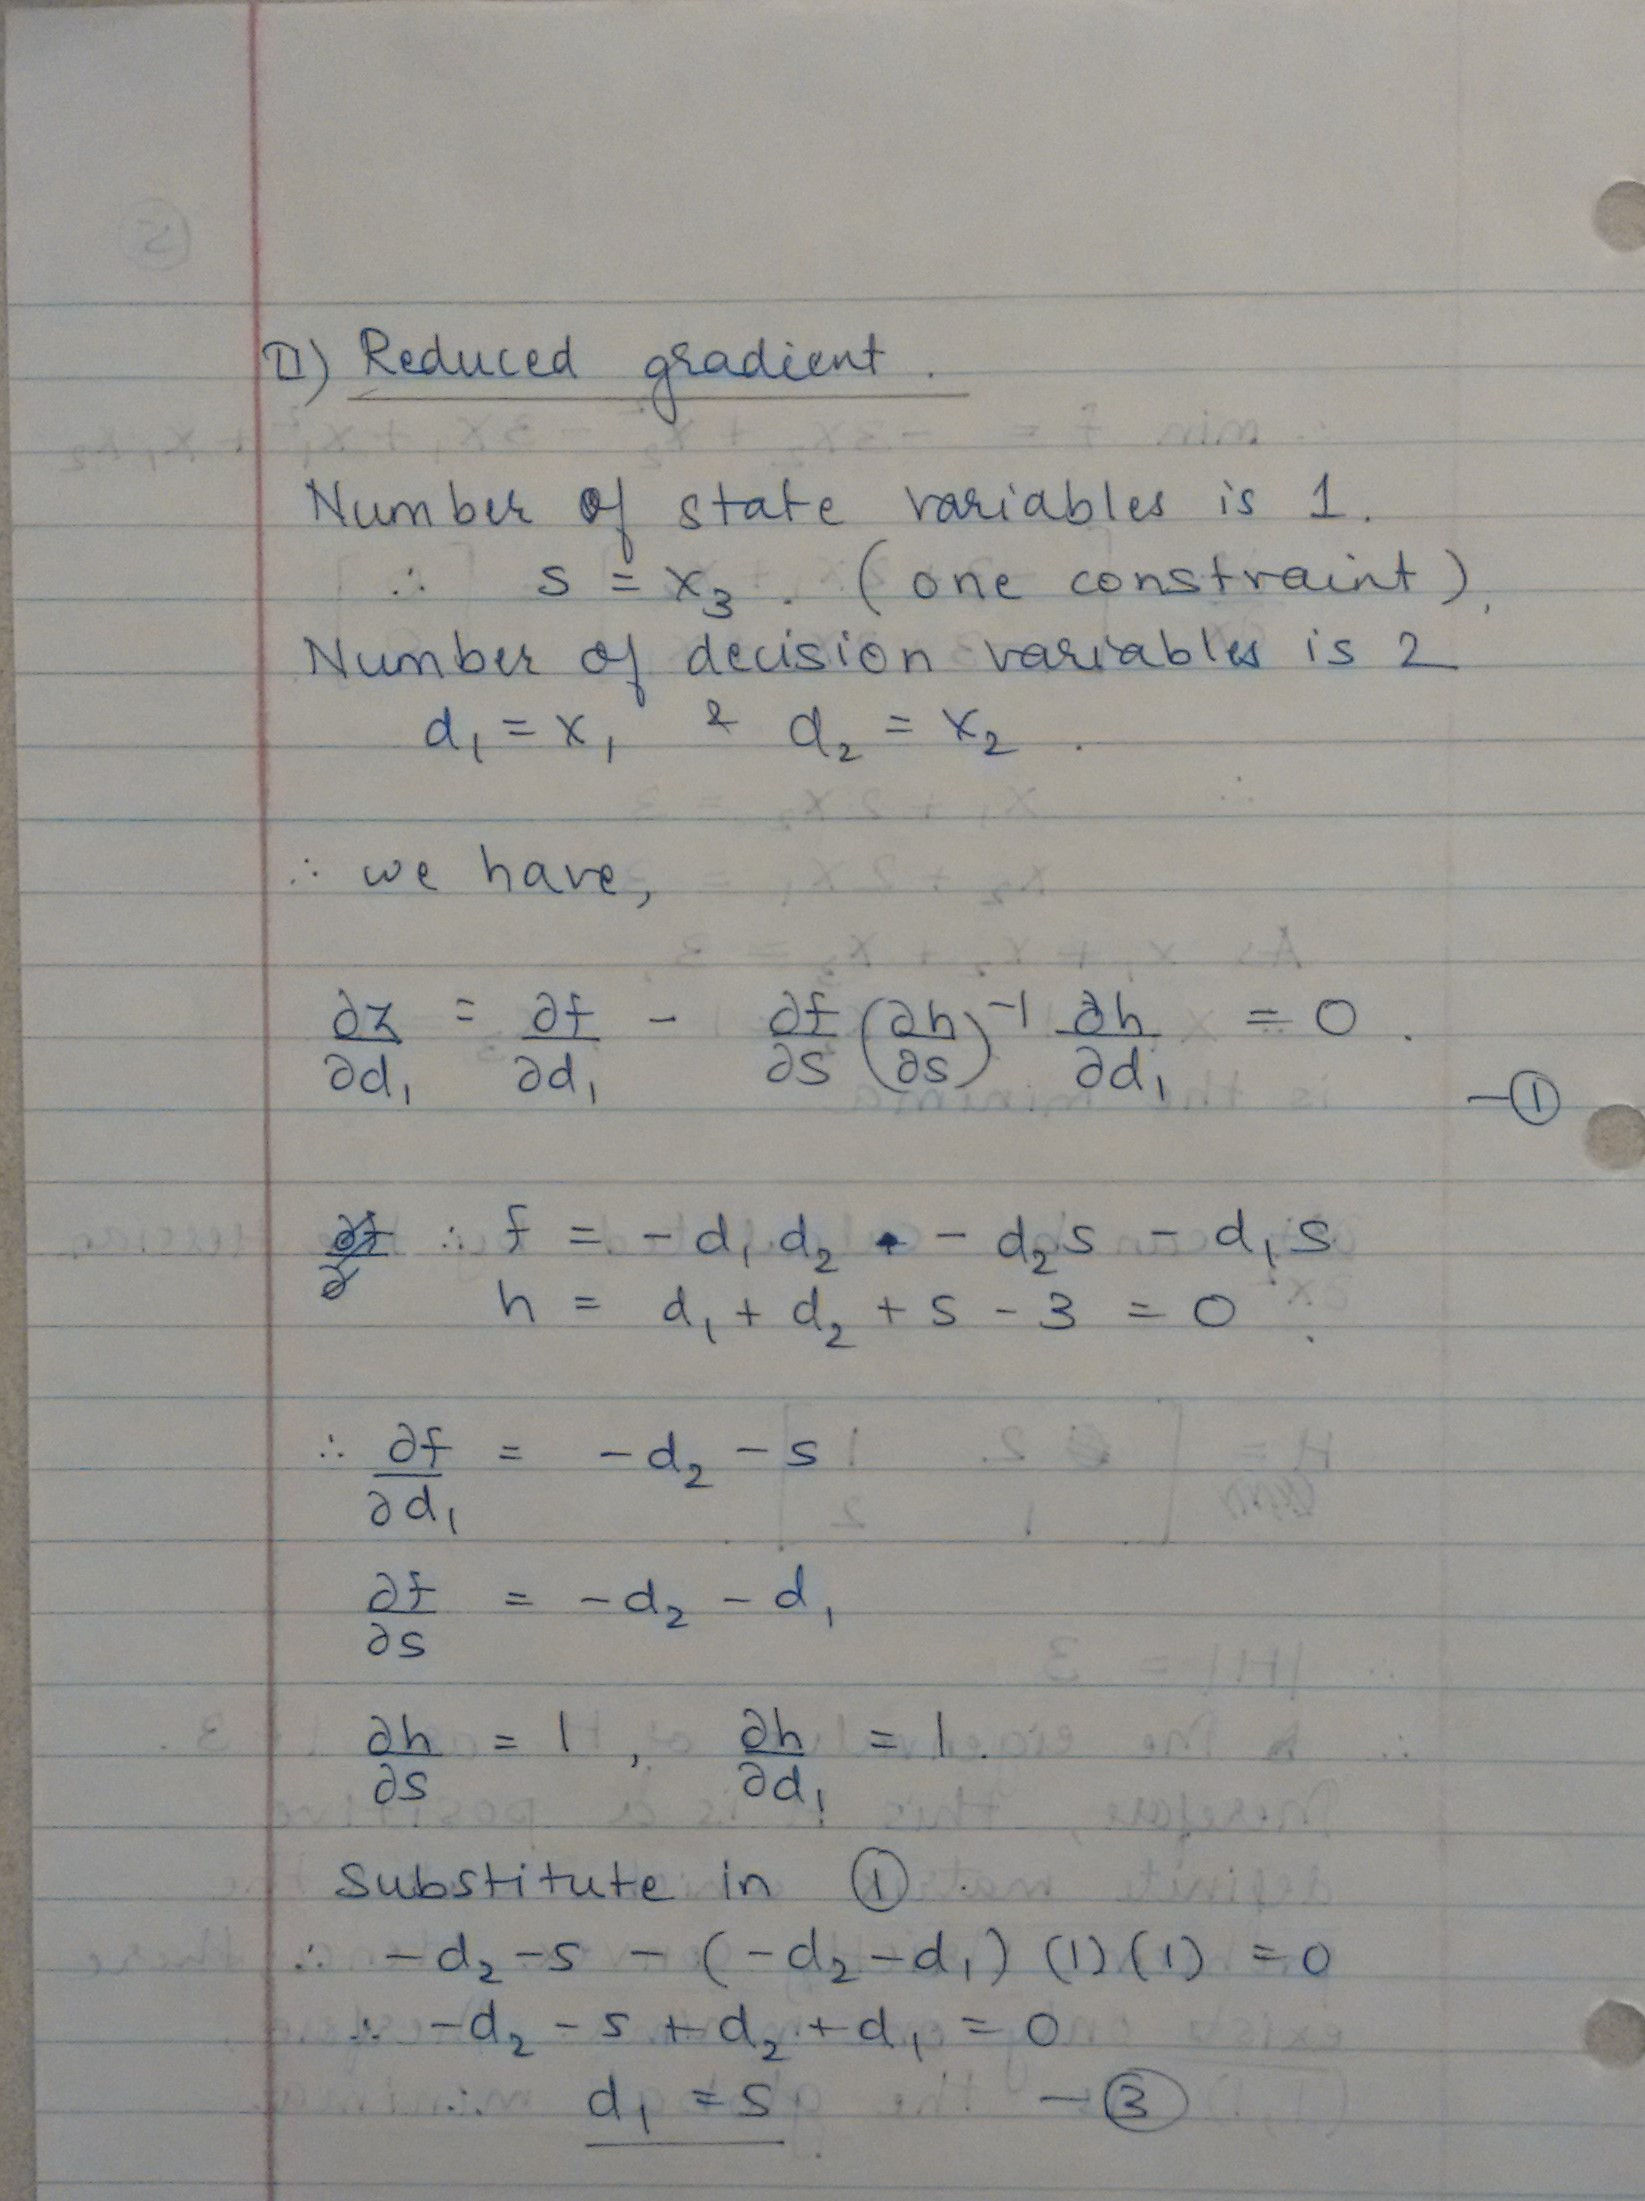 II) Reduced gradient.
Number of state variables is 1.
∴ s = x₃. (one constraint).
Number of decision variables is 2
d₁ = x₁ & d₂ = x₂.
∴ we have,
∂z/∂d₁ = ∂f/∂d₁ - ∂f/∂s (∂h/∂s)⁻¹ ∂h/∂d₁ = 0. —①
∴ f = -d₁d₂ - d₂s - d₁s
h = d₁ + d₂ + s - 3 = 0.
∴ ∂f/∂d₁ = -d₂ - s
∂f/∂s = -d₂ - d₁
∂h/∂s = 1, ∂h/∂d₁ = 1.
Substitute in ①.
∴ -d₂ - s - (-d₂ - d₁) (1) (1) = 0
∴ -d₂ - s + d₂ + d₁ = 0
∴ d₁ = s —③